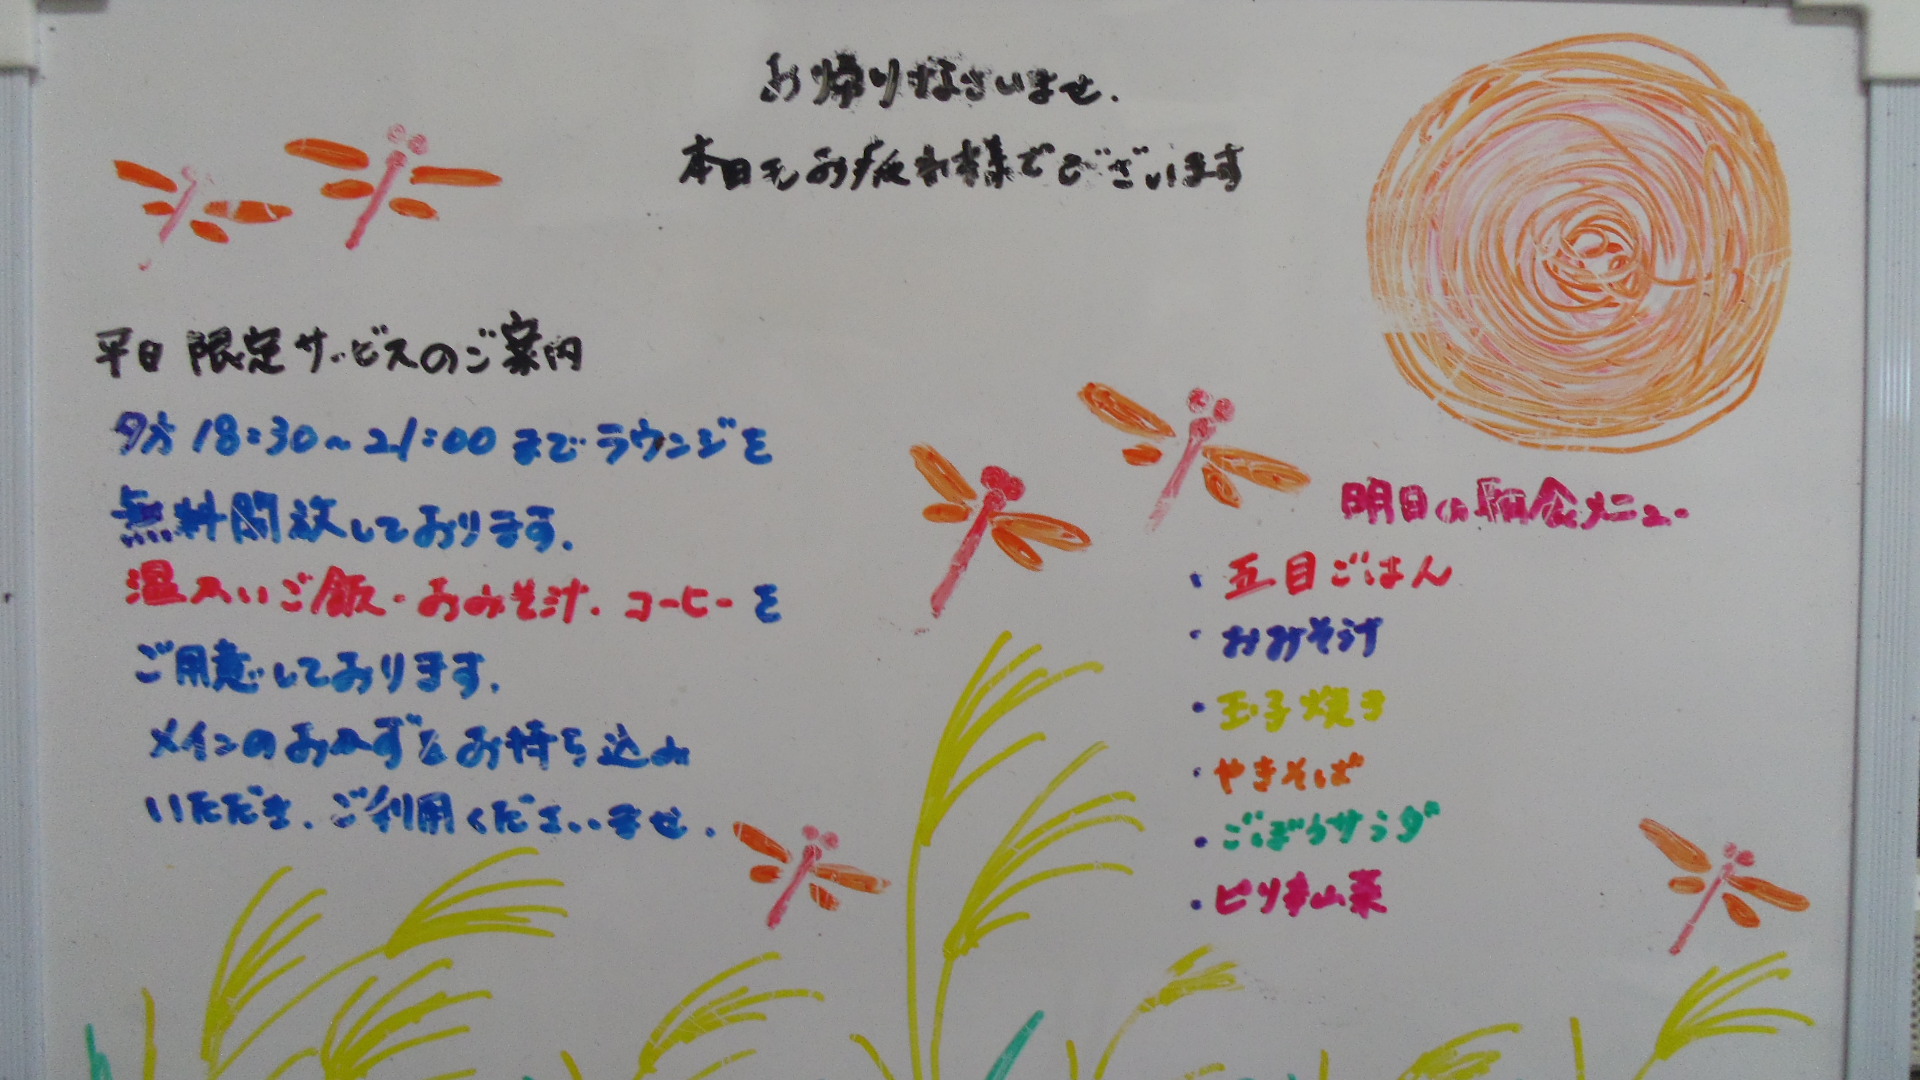 お帰りなさいませ.
本日もお疲れ様でございます
平日 限定サービスのご案内
夕方 18:30～21:00 までラウンジを
無料開放しております.
温かいご飯・おみそ汁.コーヒーを
ご用意しております.
メインのおかずをお持ち込み
いただき.ご利用くださいませ.
明日の朝食メニュー
・五目ごはん
・おみそ汁
・玉子焼き
・やきそば
・ごぼうサラダ
・ピリ辛山菜